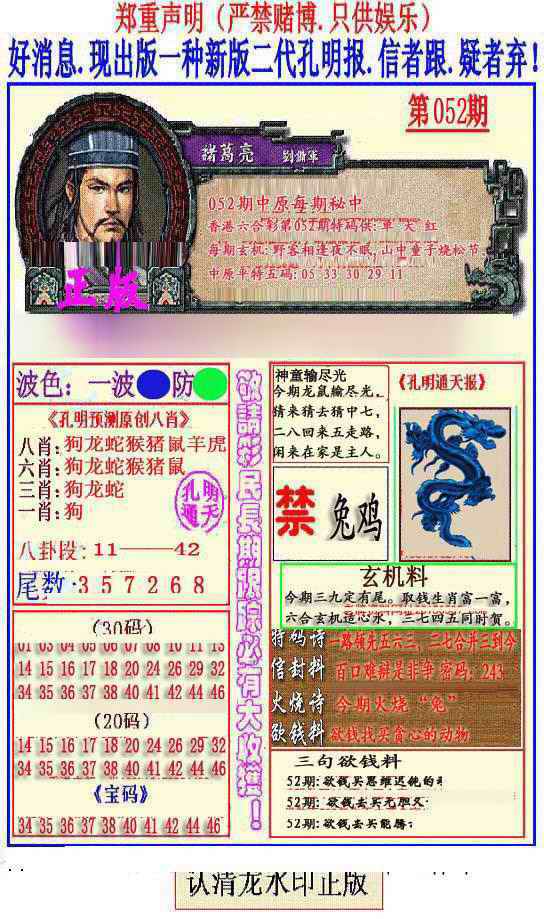 郑重声明（严禁赌博.只供娱乐）
好消息.现出版一种新版二代孔明报.信者跟.疑者弃！
第052期
諸葛亮 劉備軍
052期中原每期秘中
香港六合彩第052期特码供:单 大 红
每期玄机:野客相逢夜不眠,山中童子烧松节
中原平特五码:05 33 30 29 11
正版
波色：一波 防
《孔明预测原创八肖》
八肖:狗龙蛇猴猪鼠羊虎
六肖:狗龙蛇猴猪鼠
三肖:狗龙蛇
一肖:狗
孔明通天
八卦段：11——42
尾数·357268
(30码)
01 03 04 05 06 07 08 10 11 13
14 15 16 17 18 20 24 26 29 32
34 35 36 37 38 40 41 42 44 46
(20码)
14 15 16 17 18 20 24 26 29 32
34 35 36 37 38 40 41 42 44 46
《宝码》
34 35 36 37 38 40 41 42 44 46
敬請彩民長期跟踪必有大收獲！
神童输尽光
今期龙鼠输尽光。
猜来猜去猜中七，
二八回来五走路，
闲来在家是主人。
《孔明通天报》
禁 兔鸡
玄机料
今期三九定有尾。取钱生肖富一富，
六合玄机造心水，三七四五同时贺。
特码诗 一路领先五六三，三七合并三到今
信封料 百口难辩是非争 密码：243
火烧诗 今期火烧“兔”
欲钱料 欲钱找买贪心的动物
三句欲钱料
52期:欲钱买思维迟钝的
52期:欲钱去买无胆
52期:欲钱去买能腾
认清龙水印正版